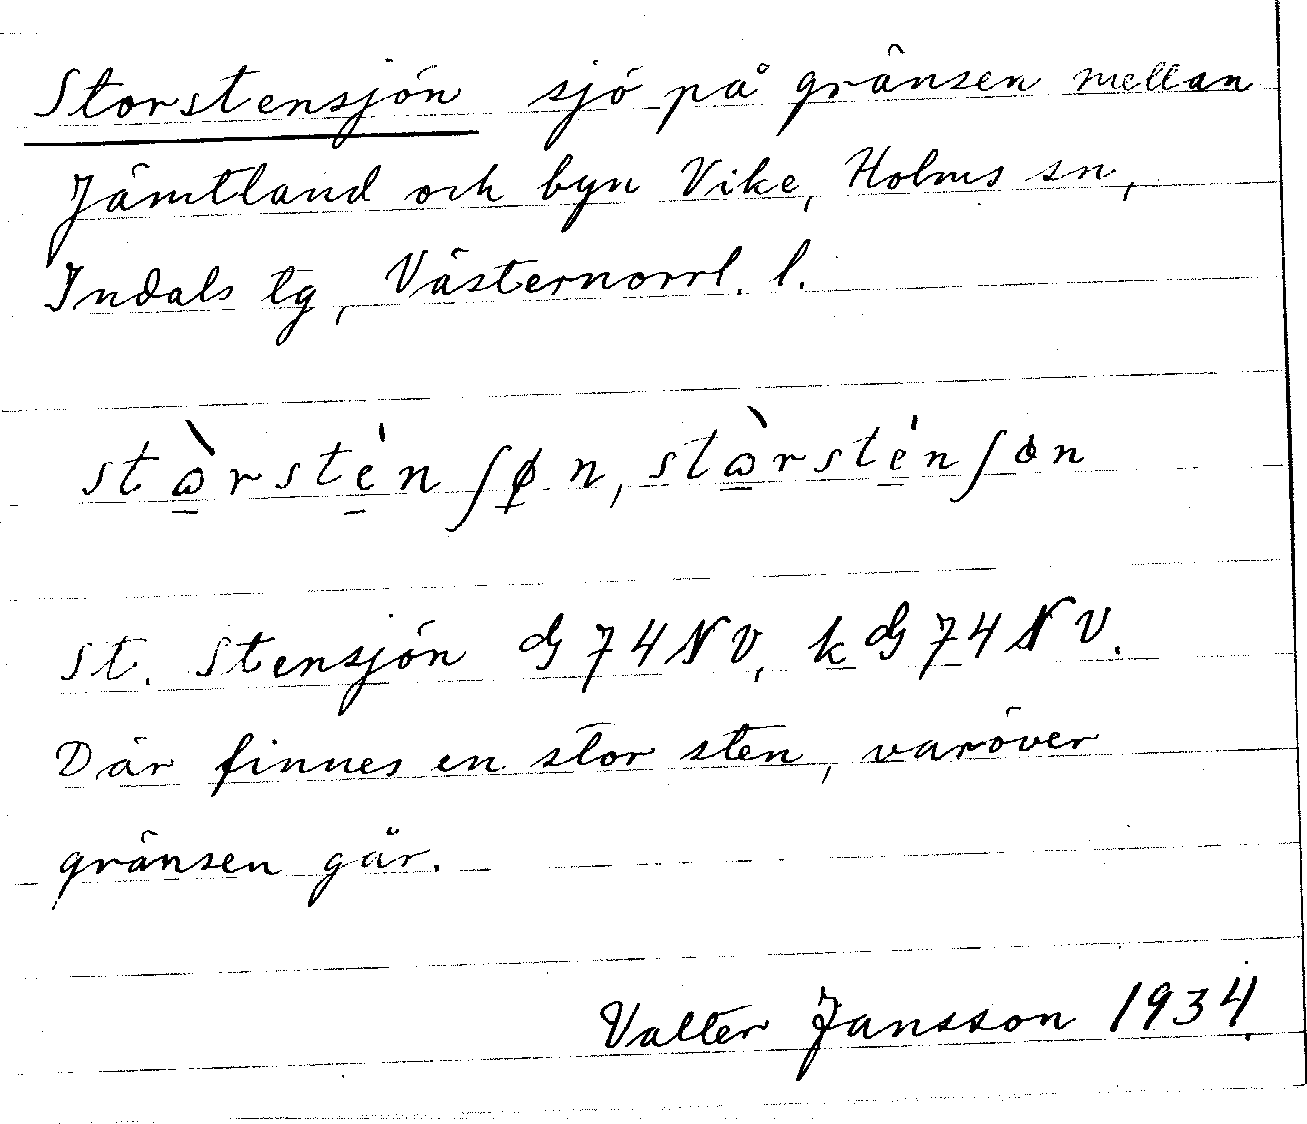 Storstensjön sjö på gränsen mellan
Jämtland och byn Vike, Holms sn,
Indals tg, Västernorrl. l.
st. Stensjön G 74 NV, k G 74 NV.
Där finnes en stor sten, varöver
gränsen går.
Valter Jansson 1934.